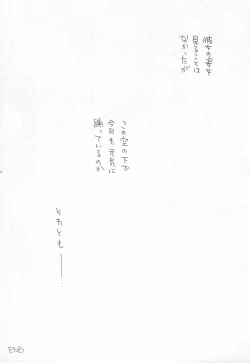 彼女の姿を
見ることは
なかったが
この空の下で
今日も元気に
踊っているのか
それとも―――.
END